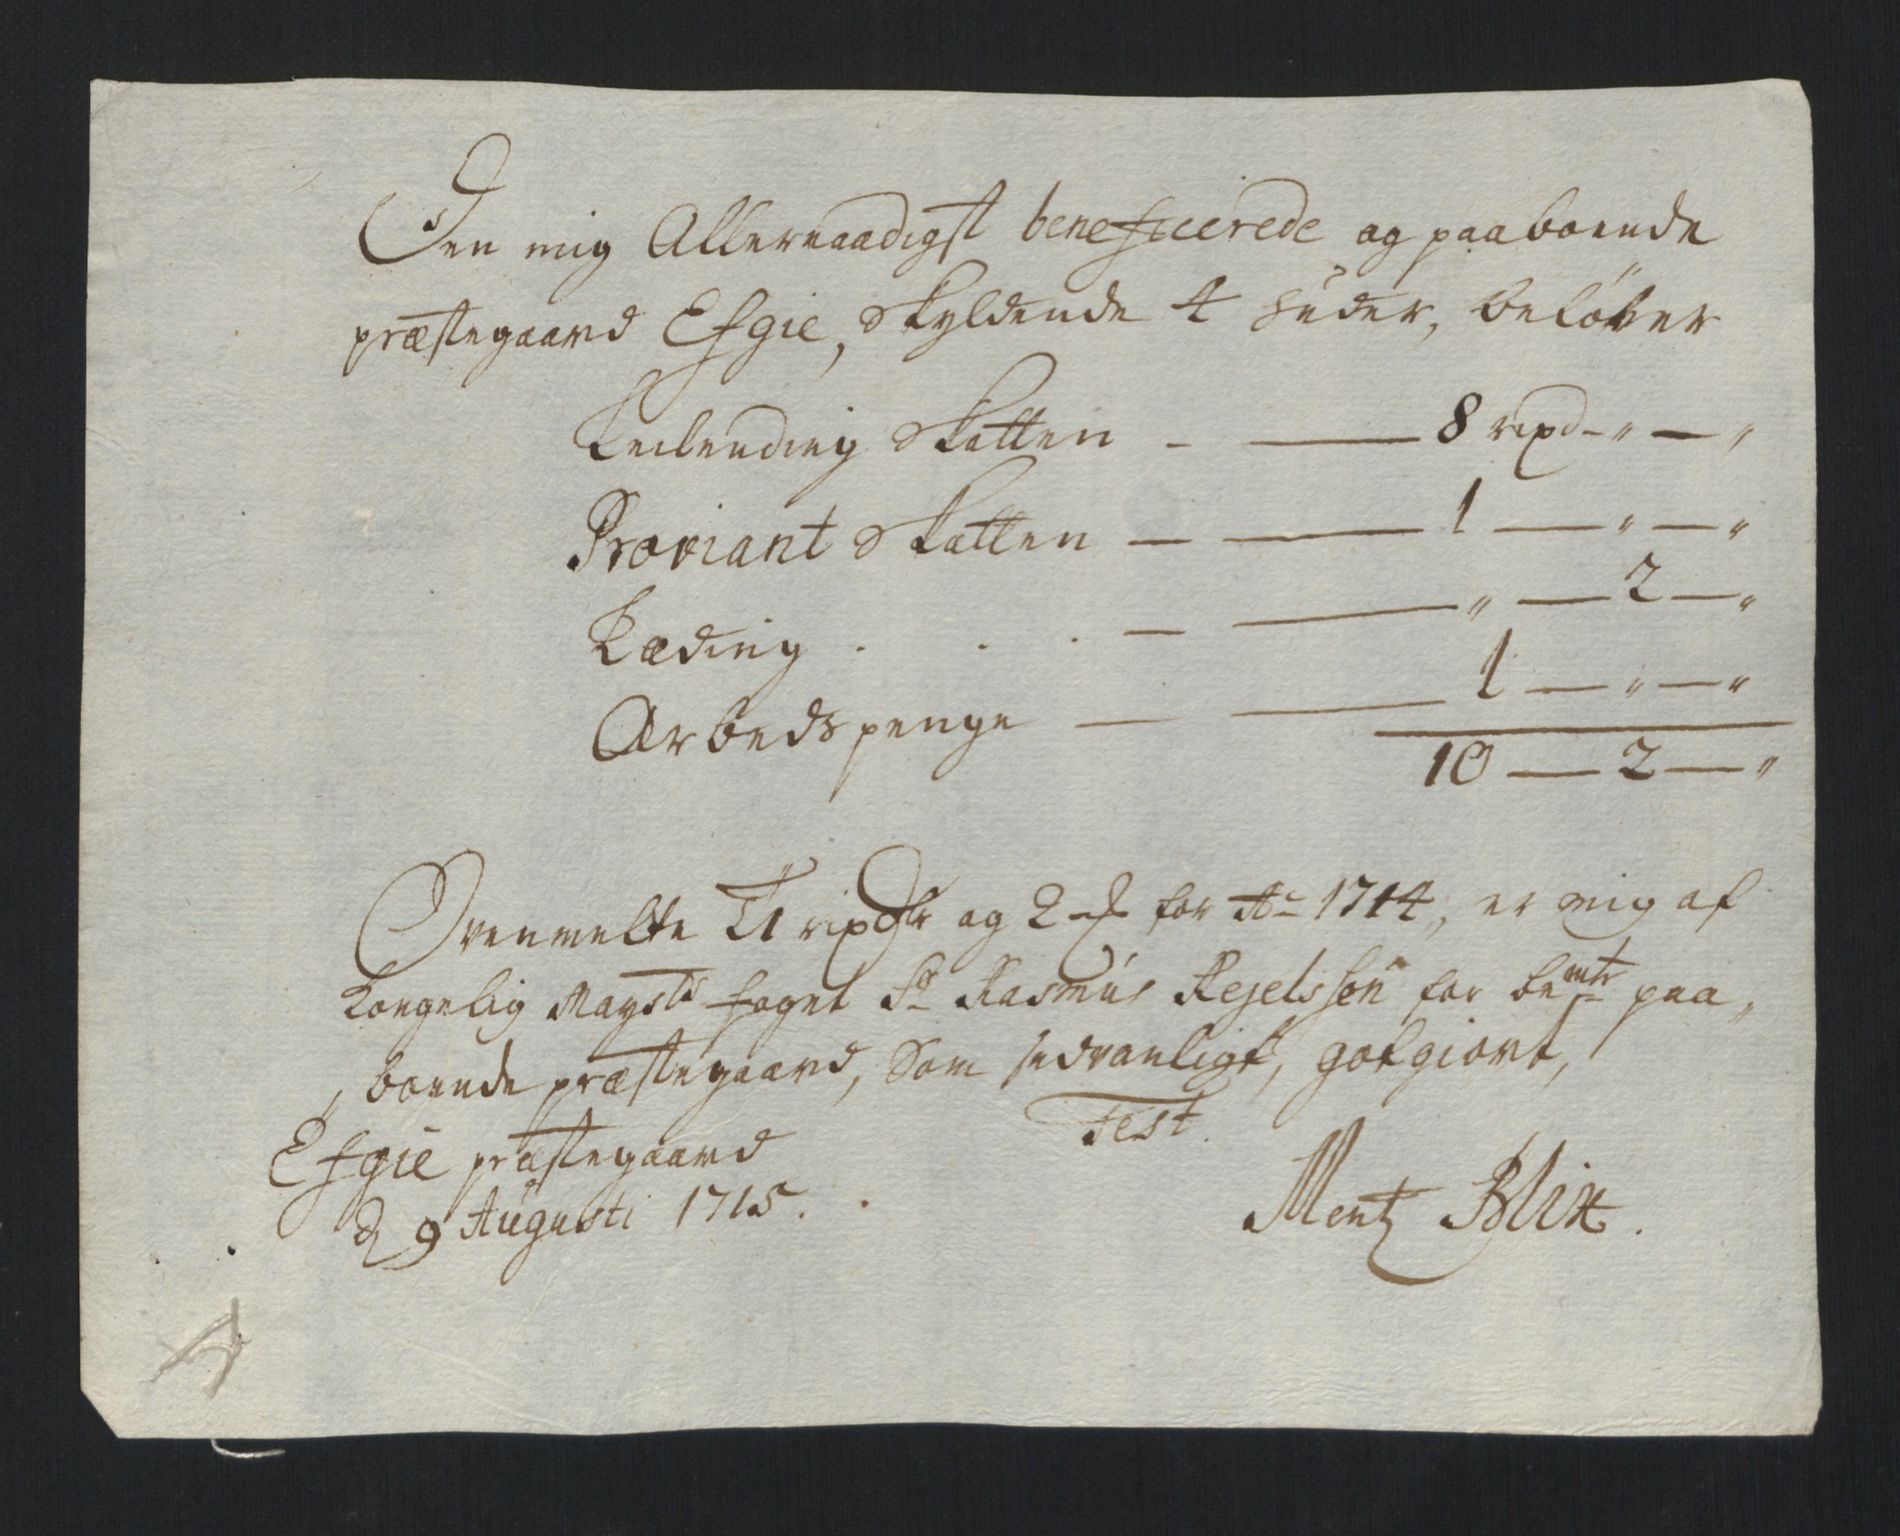 Den mig Allernaadigst beneficerede og paaboende
præstegaard Efgie, skyldende 4 huder, beløber
Leilending skatten - — 8 rixd - " — "
Proviant skatten — — 1 — " — "
Læding . . . — — " — 2 — "
Arbedspenge — — 1 — " — "
10 — 2 — "
Ovenmelte Ti rixdlr og 2 for Ao 1714, er mig af
Kongelig Maysts foget Sr Rasmus Kejelssøn for bemte paa,
, boende præstegaard, som sedvanligt, gotgiort,
Test.
Efgie præstegaard
d 9 Augusti 1715.
Mentz Blix.